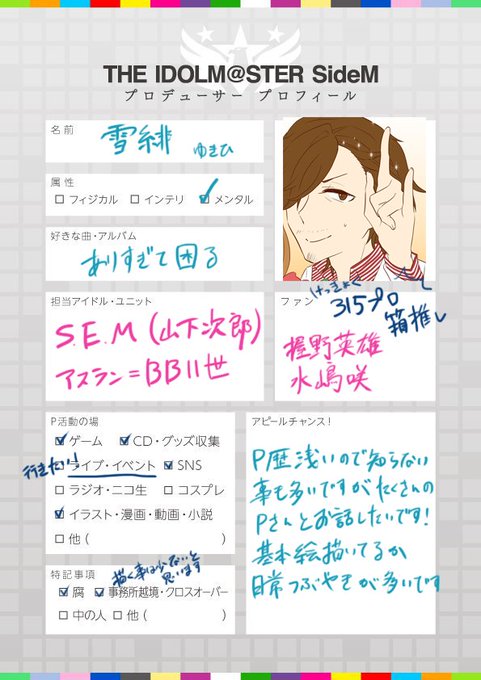 THE IDOLM@STER SideM
プロデューサー プロフィール
名前
雪緋 ゆきひ
属性
□ フィジカル □ インテリ ☑ メンタル
好きな曲・アルバム
ありすぎて困る
担当アイドル・ユニット
S.E.M (山下次郎)
アスラン=BBⅡ世
ファン
けっきょく
315プロ
箱推し
握野英雄
水嶋咲
P活動の場
☑ ゲーム ☑ CD・グッズ収集
行きたい!
□ ライブ・イベント ☑ SNS
□ ラジオ・ニコ生 □ コスプレ
☑ イラスト・漫画・動画・小説
□ 他 ( )
特記事項
描く事は少ないと
思います
☑ 腐 ☑ 事務所越境・クロスオーバー
□ 中の人 □ 他 ( )
アピールチャンス!
P歴浅いので知らない
事も多いですがたくさんの
Pさんとお話したいです!
基本絵描いてるか
日常つぶやきが多いです